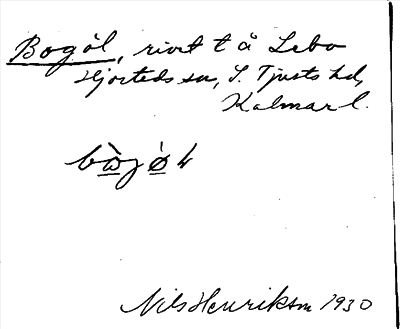 Bogöl, rivet t å Lebo
Hjorteds sn, S. Tjusts hd,
Kalmar l.
Nils Henrikson 1930